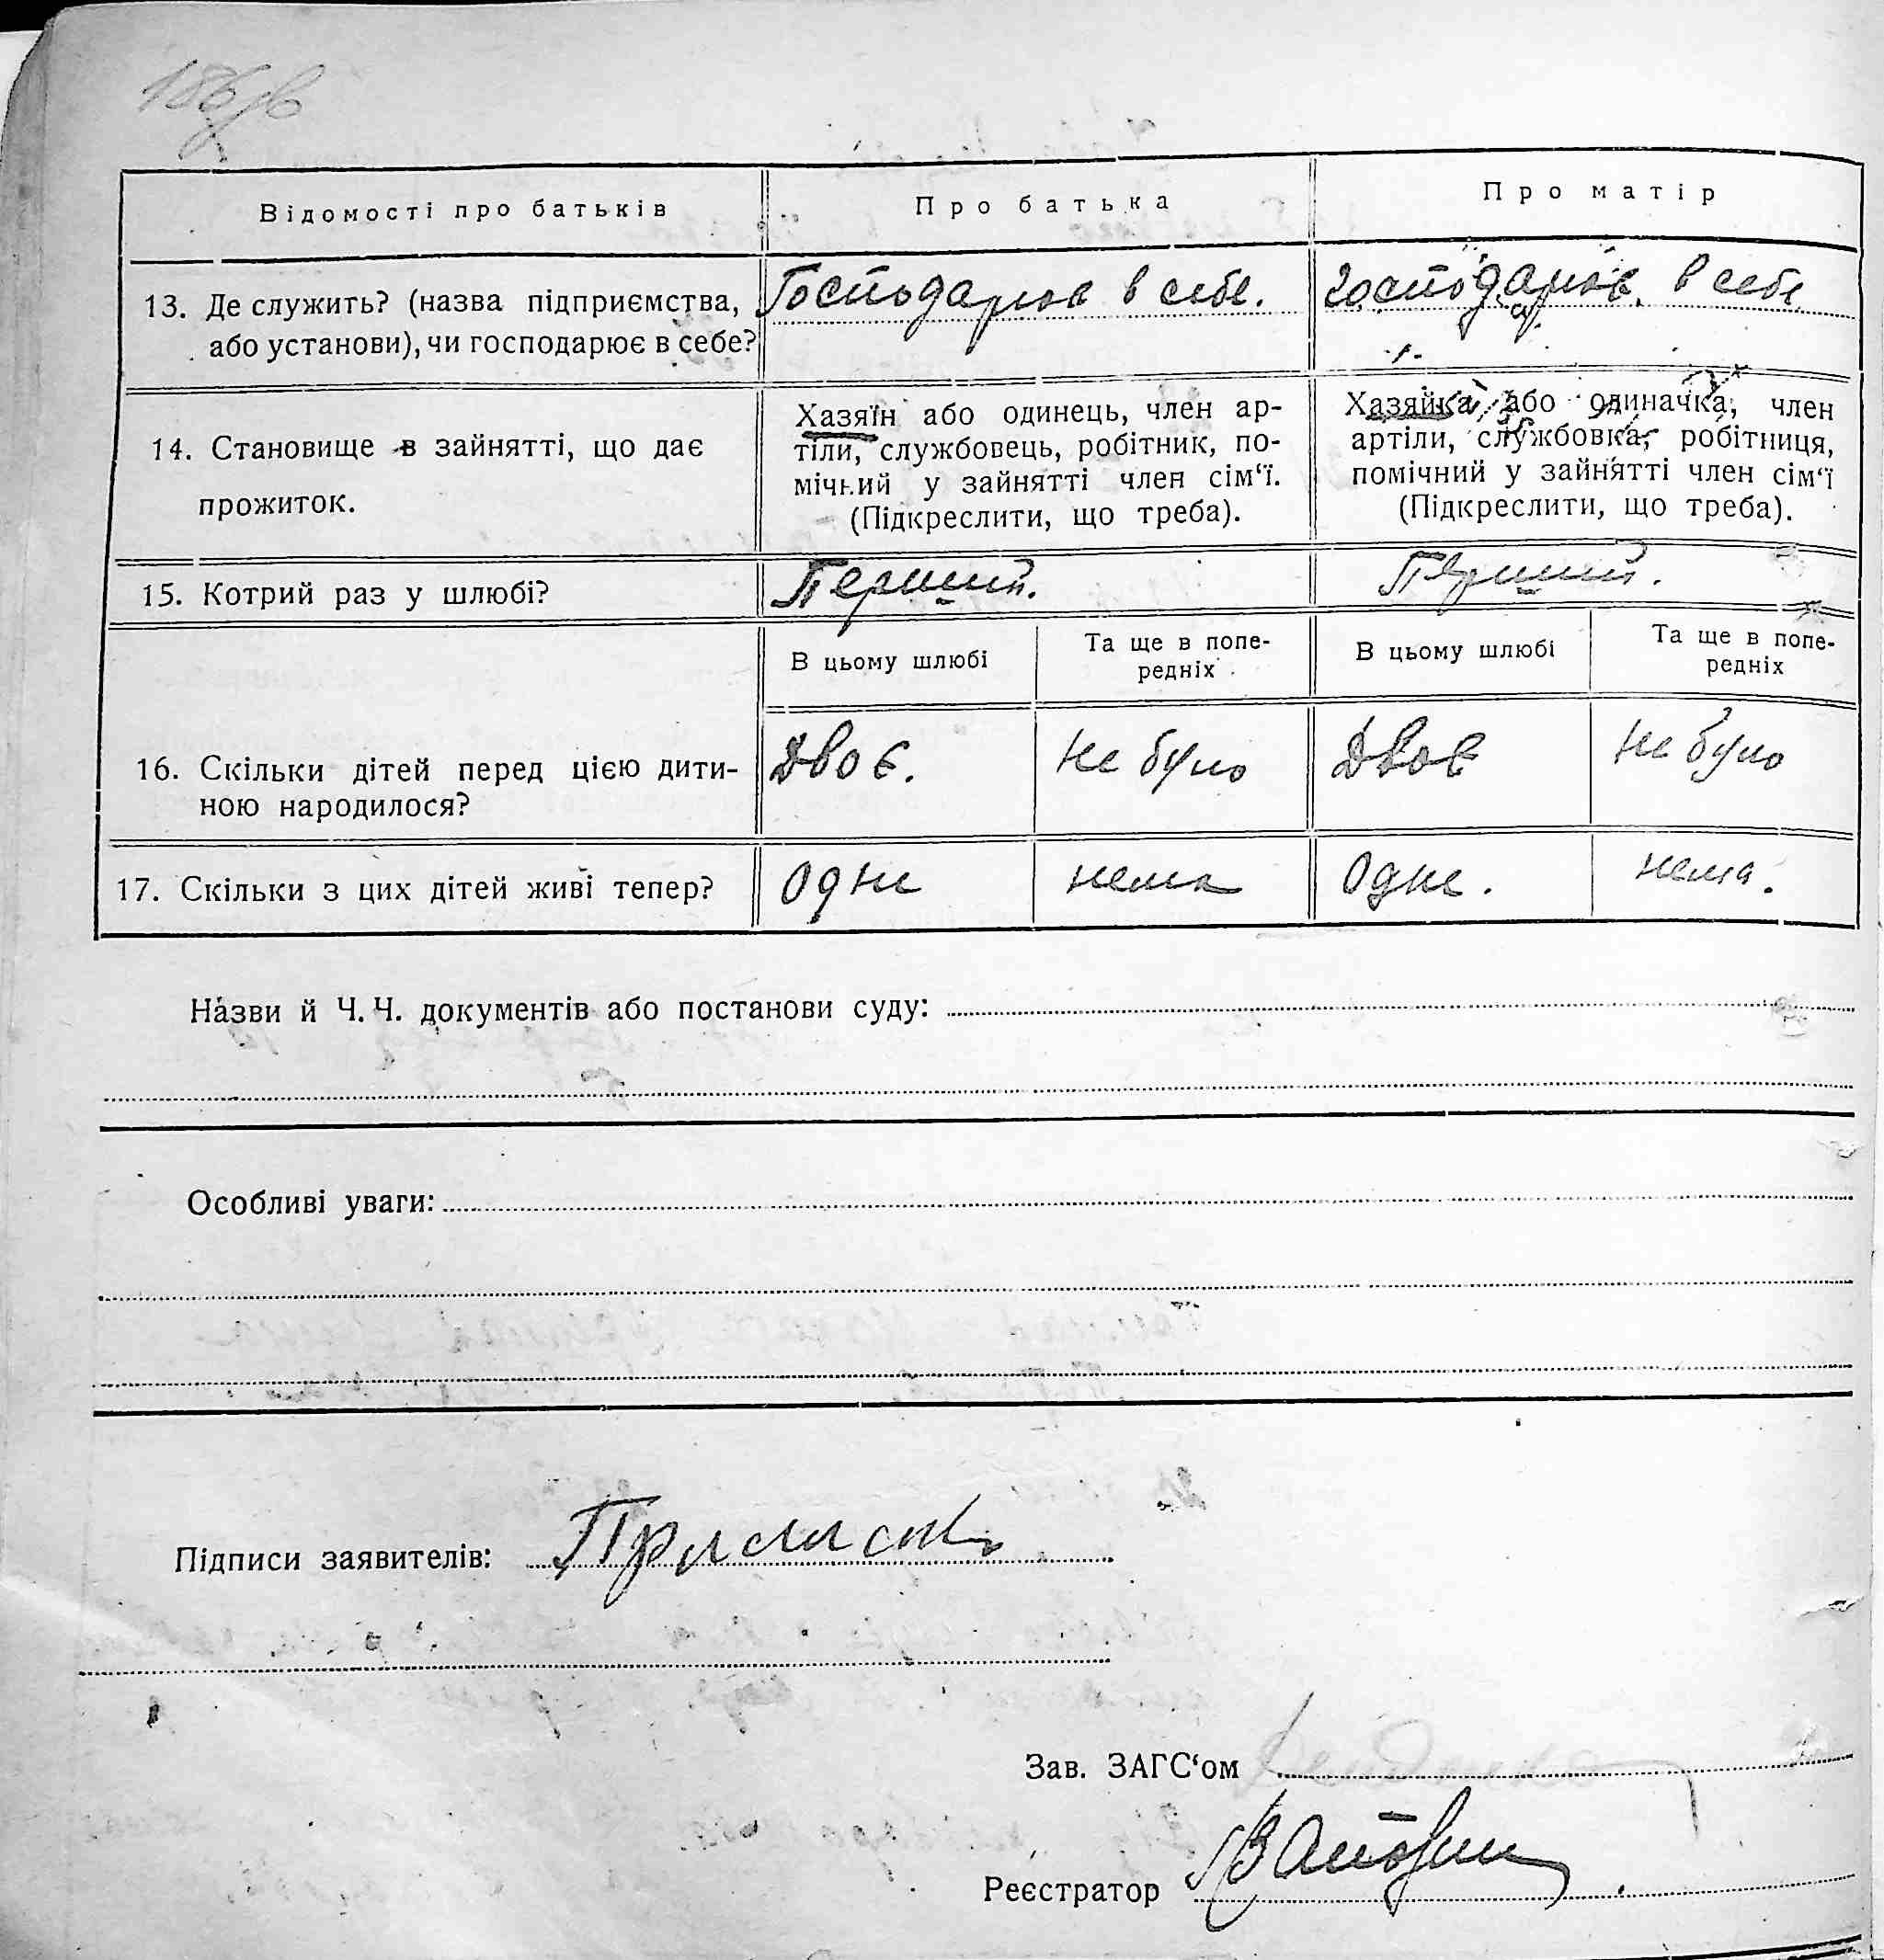 Відомості про батьків Про батька Про матір
13. Де служить? (назва підприємства, або установи), чи господарює в себе?
Господарює в себе. господарює в себе
14. Становище в зайнятті, що дає прожиток.
Хазяїн або одинець, член ар-
тіли, службовець, робітник, по-
мічний у зайнятті член сім‘ї.
(Підкреслити, що треба).
Хазяйка або одиначка, член
артіли, службовка, робітниця,
помічний у зайнятті член сім‘ї
(Підкреслити, що треба).
15. Котрий раз у шлюбі? Перший. Перший.
В цьому шлюбі Та ще в попе-
редніх В цьому шлюбі Та ще в попе-
редніх
16. Скільки дітей перед цією дити-
ною народилося?
Двоє. не було Двоє не було
17. Скільки з цих дітей живі тепер? Одне нема Одне. нема.
Назви й Ч. Ч. документів або постанови суду:
Особливі уваги:
Підписи заявителів:
Зав. ЗАГС‘ом
Реєстратор